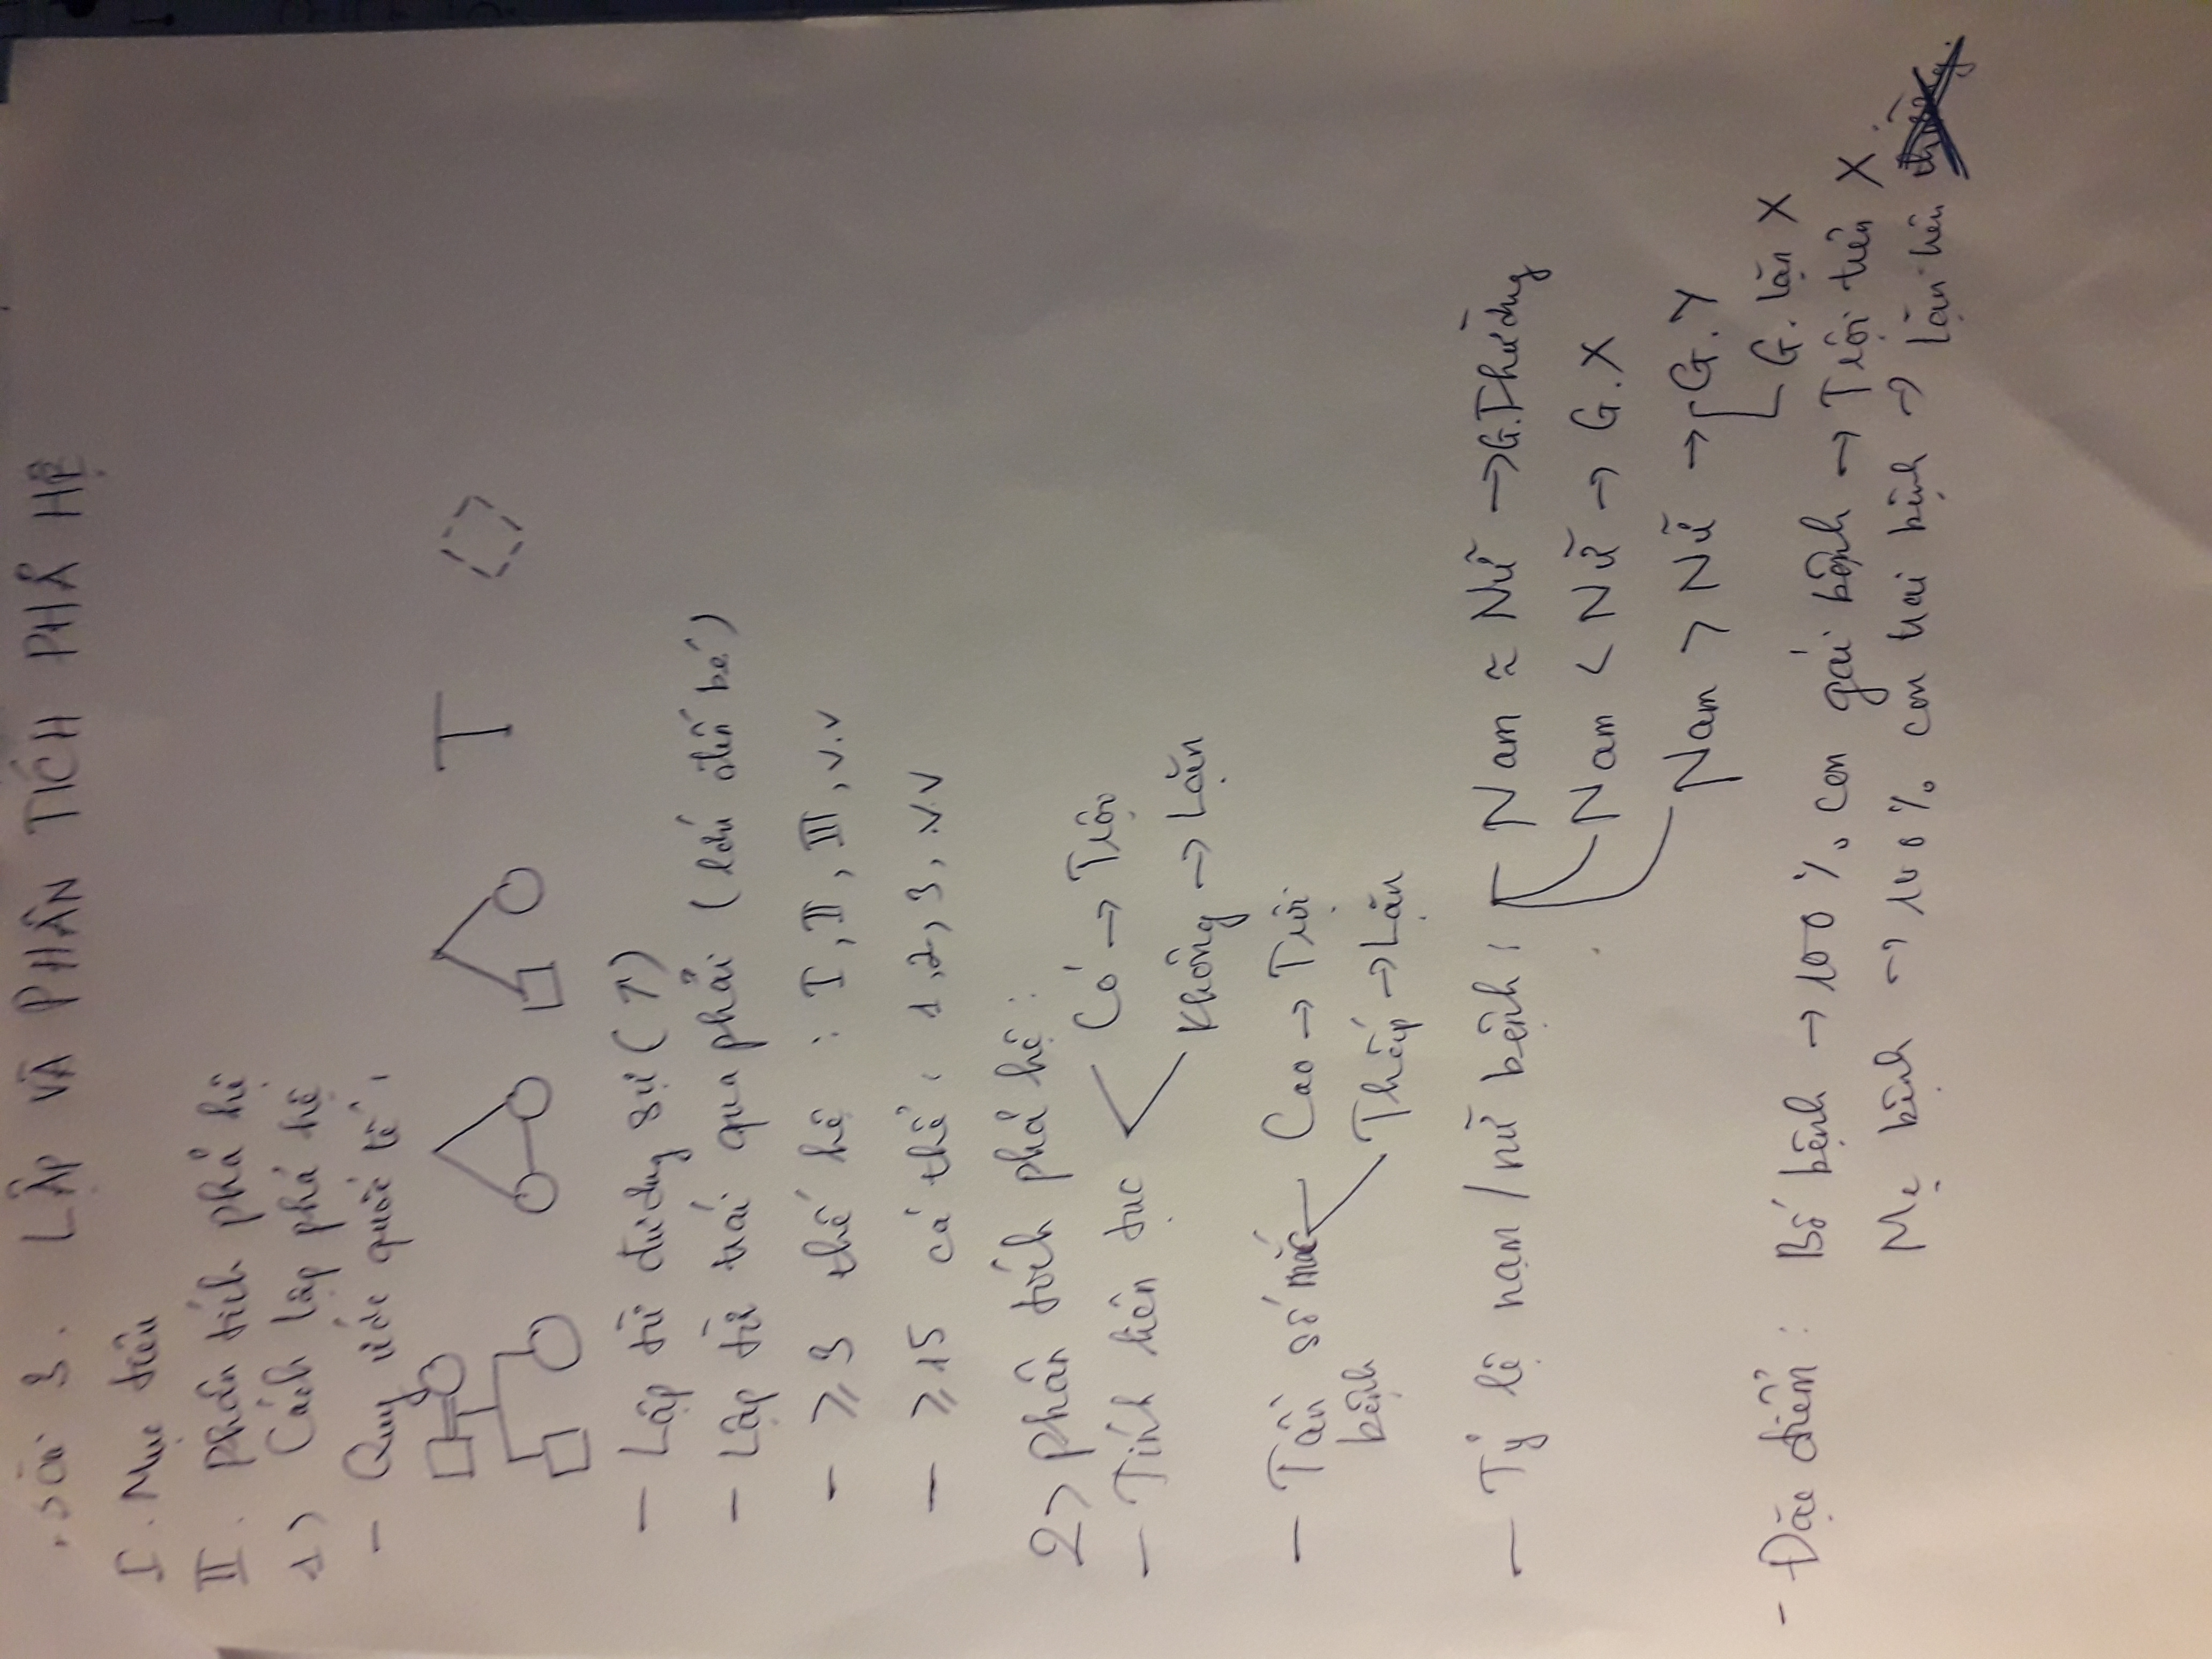 Bài 3. LẬP VÀ PHÂN TÍCH PHẢ HỆ
I. Mục tiêu
II. Phân tích phả hệ
1) Cách lập phả hệ
- Quy ước quốc tế:
- Lập từ đương sự (↑)
- Lập từ trái qua phải (lớn đến bé)
- ≥ 3 thế hệ : I, II, III, v.v
- ≥ 15 cá thể: 1, 2, 3, v.v
2) Phân tích phả hệ:
- Tính liên tục
Có → Trội
Không → Lặn
- Tần số mắc bệnh
Cao → Trội
Thấp → Lặn
- Tỷ lệ nam/nữ bệnh:
Nam ≈ Nữ → G.Thường
Nam < Nữ → G.X
Nam > Nữ → G.Y
G. lặn X
- Đặc điểm: Bố bệnh → 100% con gái bệnh → Trội trên X.
Mẹ bệnh → 100% con trai bệnh → lặn trên